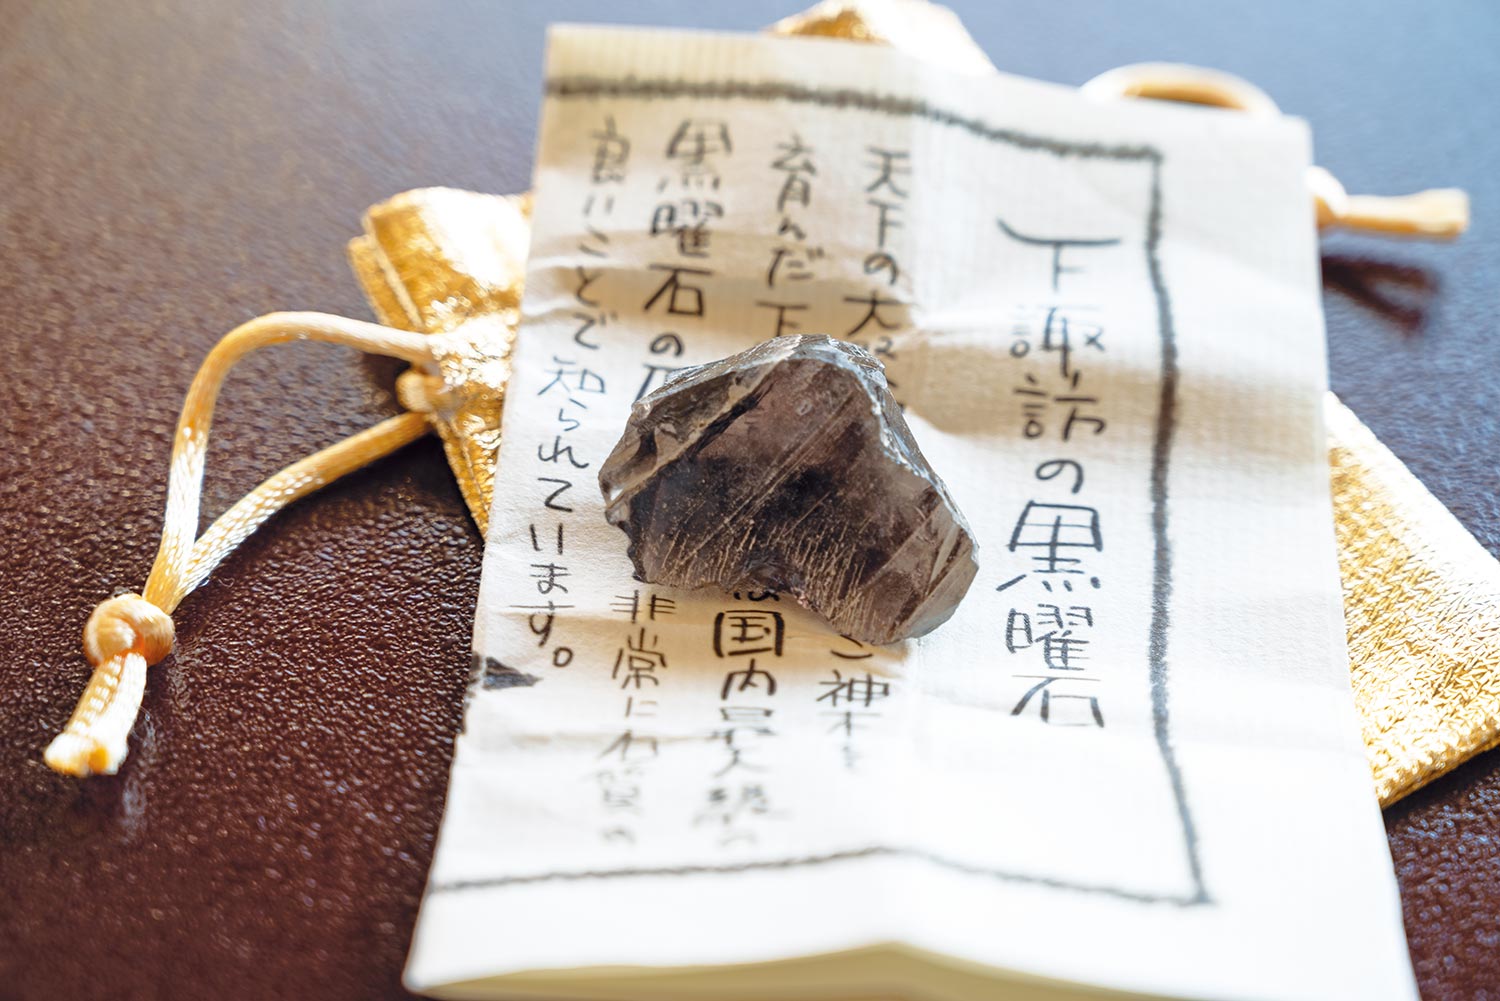 下諏訪の黒曜石
天下の大 神木を
育んだ下 国内最大級の
黒曜石の 非常に 質の
良いことで知られています。